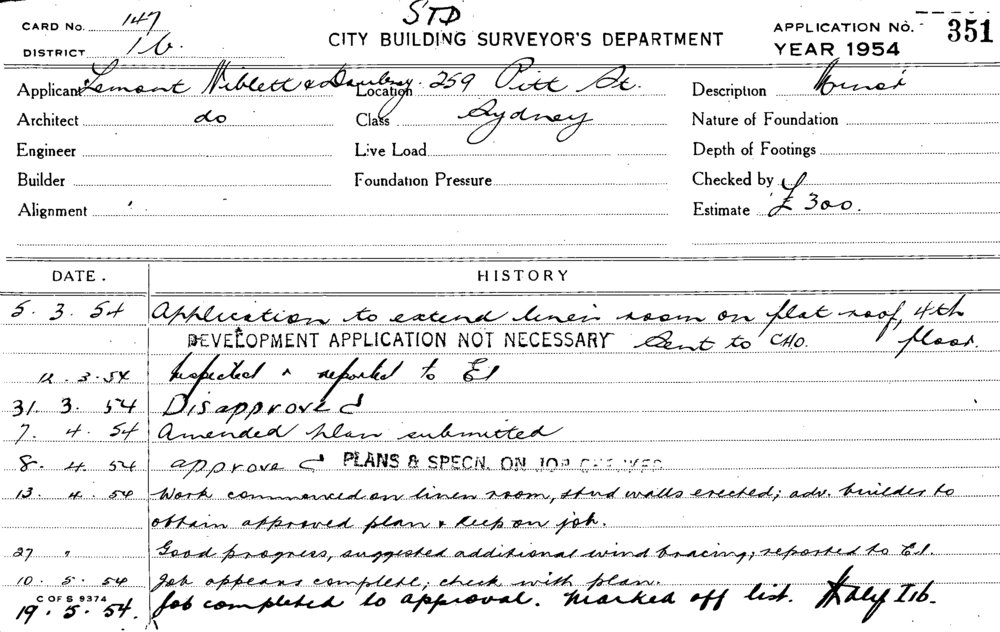 STD
CARD No. 147
CITY BUILDING SURVEYOR'S DEPARTMENT
APPLICATION No. 351
DISTRICT 1b.
YEAR 1954
Applicant Lemont Niblett & Location 259 Pitt St.
Description Minor
Architect do
Class Sydney
Nature of Foundation
Engineer
Live Load
Depth of Footings
Builder
Foundation Pressure
Checked by
Alignment
Estimate £ 300.
DATE. HISTORY
5. 3. 54 Application to extend linen room on flat roof, 4th
DEVELOPMENT APPLICATION NOT NECESSARY Sent to CHO. floor.
12. 3. 54 Inspected & reported to EI
31. 3. 54 Disapproved
7. 4. 54 Amended plan submitted
8. 4. 54 approved PLANS & SPECN. ON JOB CHECKED
13. 4. 54 Work commenced on linen room, stud walls erected; adv. builder to
obtain approved plan & keep on job.
27 " Good progress, suggested additional wind bracing; reported to E.I.
10. 5. 54 Job appears complete; check with plan.
C OF S 9374
19. 5. 54. Job completed to approval. Marked off list. I1b.